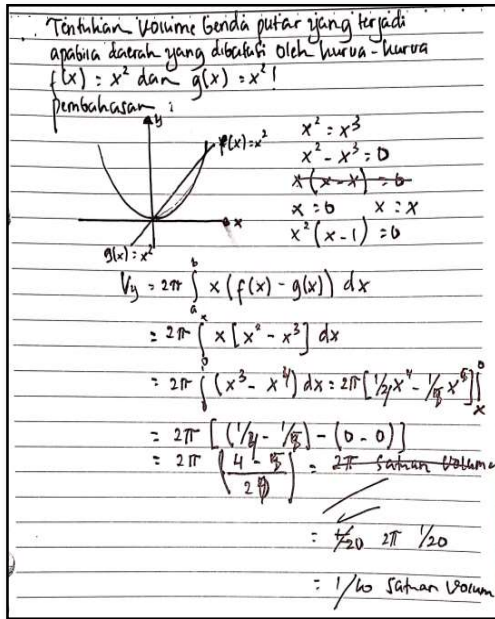 Tentukan Volume benda putar yang terjadi
apabila daerah yang dibatasi oleh kurva-kurva
f(x) = x² dan g(x) = x² !
pembahasan :
y
f(x)=x²
x
g(x)=x²
x² = x³
x² - x³ = 0
x(x-x) = 0
x = 0 x = x
x²(x-1) = 0
Vy = 2π ∫ₐᵇ x(f(x) - g(x)) dx
= 2π ∫ x[x² - x³] dx
= 2π ∫ (x³ - x⁴) dx = 2π [1/4 x⁴ - 1/5 x⁵]
= 2π [(1/4 - 1/5) - (0 - 0)]
= 2π (4 - 5 / 20) = 2π Satuan Volume
= 1/20 2π 1/20
= 1/10 Satuan Volum